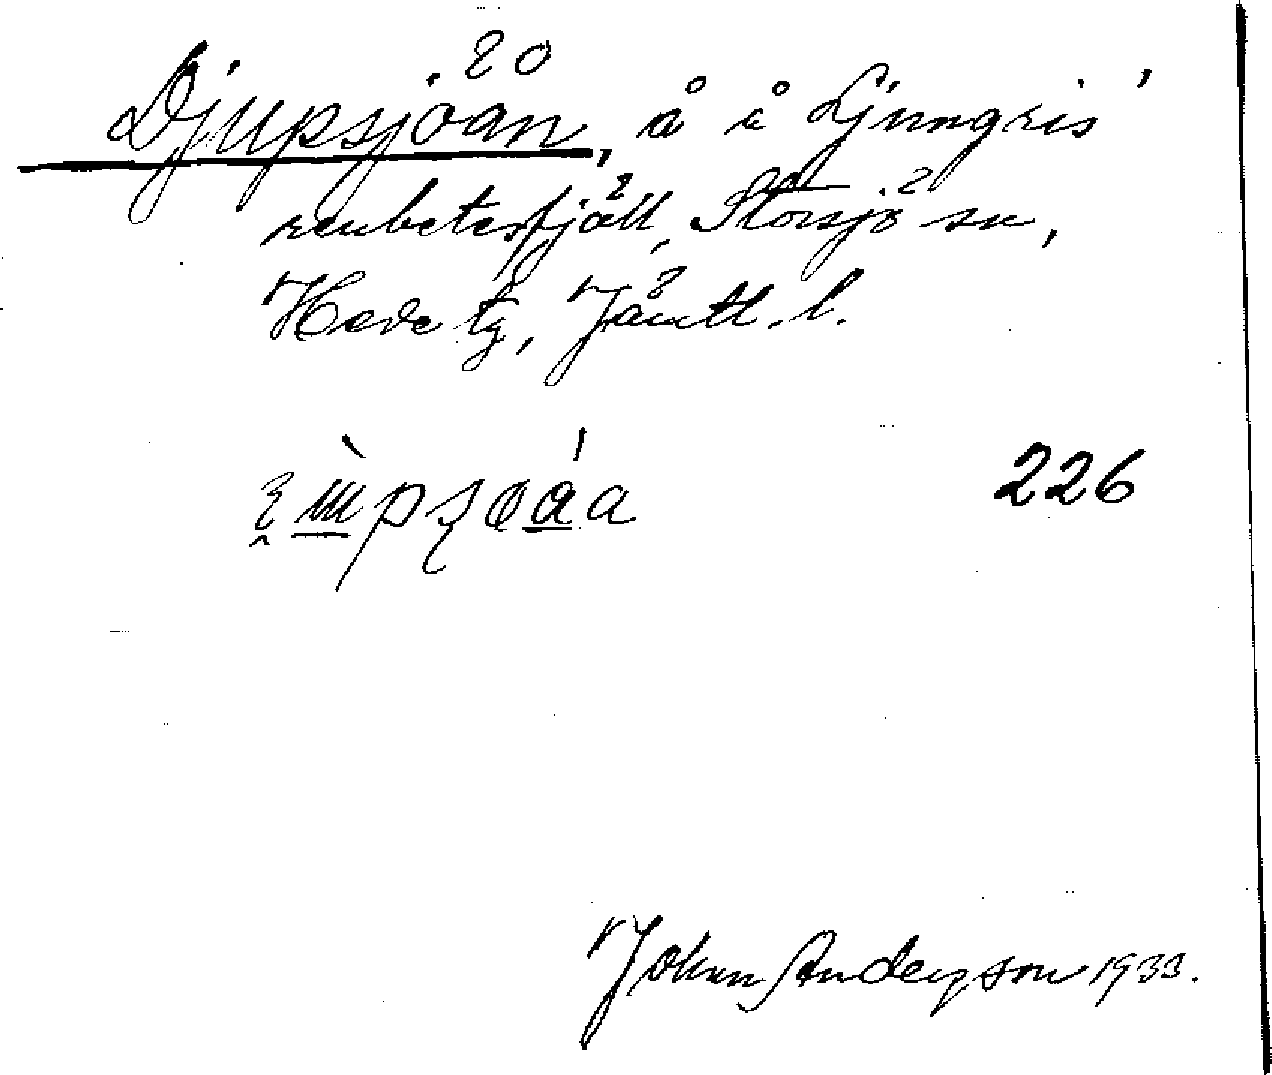 Djupsjöån, å i Ljungris'
renbetesfjäll, Storsjö sn,
Hede tg, Jämtl. l.
226
John Anderson 1933.